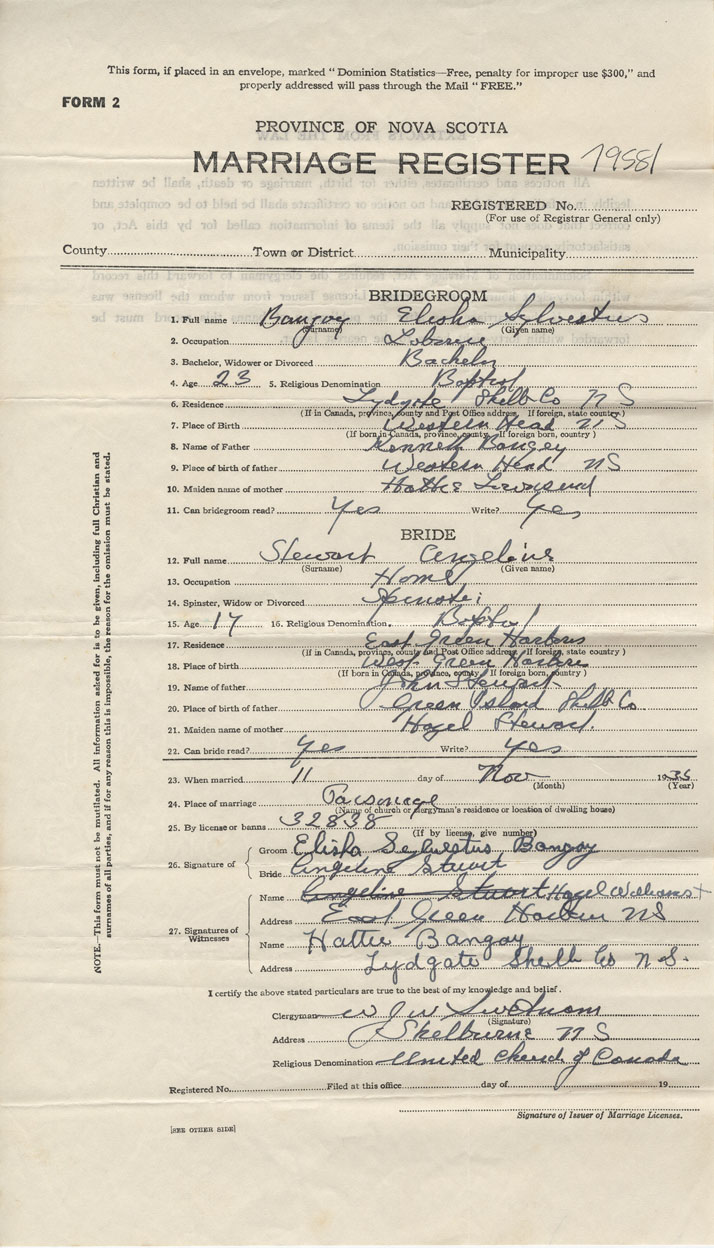 This form, if placed in an envelope, marked "Dominion Statistics—Free, penalty for improper use $300," and
properly addressed will pass through the Mail "FREE."
FORM 2
PROVINCE OF NOVA SCOTIA
MARRIAGE REGISTER
REGISTERED No.
(For use of Registrar General only)
County Town or District Municipality
BRIDEGROOM
1. Full name Bangay Elisha Sylvestus
(Surname) (Given name)
2. Occupation
3. Bachelor, Widower or Divorced Bachelor
4. Age 23 5. Religious Denomination Baptist
6. Residence Lydgate Shelb Co N S
(If in Canada, province, county and Post Office address. If foreign, state country)
7. Place of Birth Western Head N S
(If born in Canada, province, county. If foreign born, country)
8. Name of Father Kenneth Bangay
9. Place of birth of father Western Head NS
10. Maiden name of mother Hattie
11. Can bridegroom read? Yes Write? Yes
BRIDE
12. Full name Stewart Angeline
(Surname) (Given name)
13. Occupation Home
14. Spinster, Widow or Divorced Spinster
15. Age 17 16. Religious Denomination. Baptist
17. Residence East Green Harbour
(If in Canada, province, county and Post Office address. If foreign, state country)
18. Place of birth West Green Harbour
(If born in Canada, province, county. If foreign born, country)
19. Name of father John Stewart
20. Place of birth of father Green Island Shelb Co
21. Maiden name of mother Hazel Stewart.
22. Can bride read? Yes Write? Yes
23. When married 11 day of Nov 1935
(Month) (Year)
24. Place of marriage Parsonage
(Name of church or clergyman's residence or location of dwelling house)
25. By license or banns 32838
(If by license, give number)
26. Signature of Groom Elisha Sylvestus Bangay
Bride Angeline Stuart
27. Signatures of Witnesses
Name Angeline Stuart Hazel Williams
Address East Green Harbour NS
Name Hattie Bangay
Address Lydgate Shelb Co N.S.
I certify the above stated particulars are true to the best of my knowledge and belief.
Clergyman W J W
(Signature)
Address Shelburne N S
Religious Denomination United Church of Canada
Registered No. Filed at this office day of 19
Signature of Issuer of Marriage Licenses.
[SEE OTHER SIDE]
NOTE.—This form must not be mutilated. All information asked for is to be given, including full Christian and
surnames of all parties, and if for any reason this is impossible, the reason for the omission must be stated.